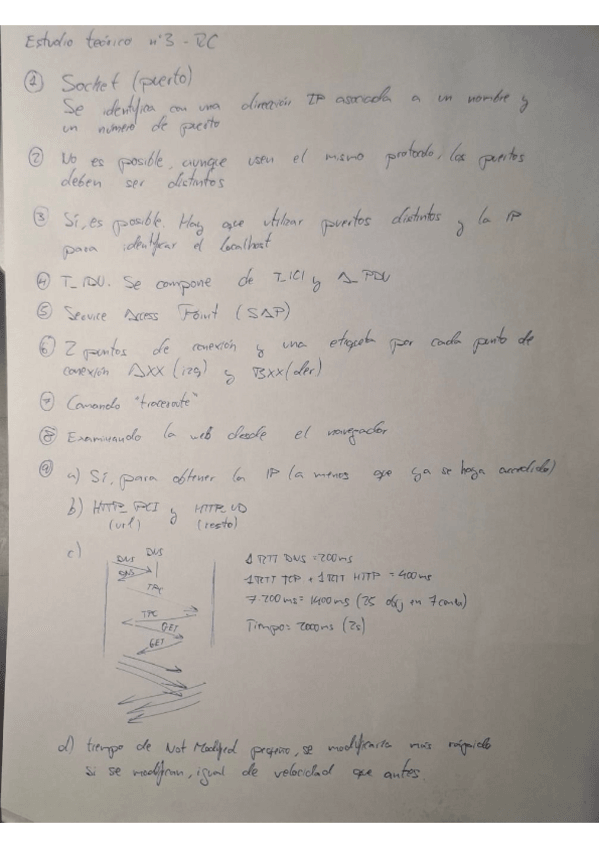 Estudio teórico nº3 - RC
① Socket (puerto)
Se identifica con una dirección IP asociada a un nombre y
un numero de puerto
② No es posible, aunque usen el mismo protocolo, los puertos
deben ser distintos
③ Sí, es posible. Hay que utilizar puertos distintos y la IP
para identificar el localhost
④ T_IDU. Se compone de T_ICI y A_PDU
⑤ Service Access Point (SAP)
⑥ 2 puntos de conexión y una etiqueta por cada punto de
conexión AXX (izq) y BXX (der)
⑦ Comando "traceroute"
⑧ Examinando la web desde el navegador
⑨ a) Sí, para obtener la IP (a menos que ya se haya accedido)
b) HTTP_PCI y HTTP_UD
(url) (resto)
c) DNS DNS
DNS
TPC
TPC
GET
GET
1 RTT DNS = 200ms
1 RTT TCP + 1 RTT HTTP = 400ms
7·200ms = 1400ms (25 obj en 7)
Tiempo = 2000ms (2s)
d) tiempo de Not Modified pequeño, se modificaría más rápido
si se modifican, igual de velocidad que antes.